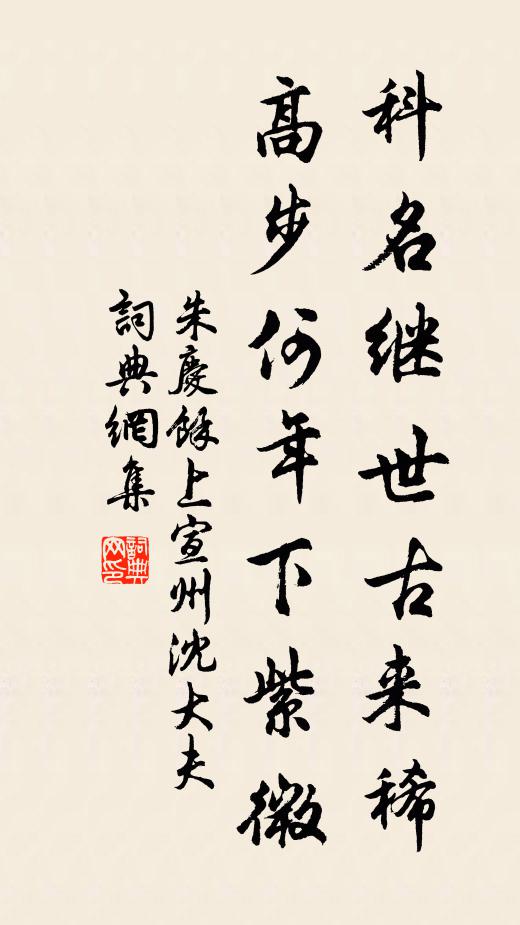 科名继世古来稀
高步何年下紫微
朱慶餘上宣州沈大夫
詞典網集
詞典网印